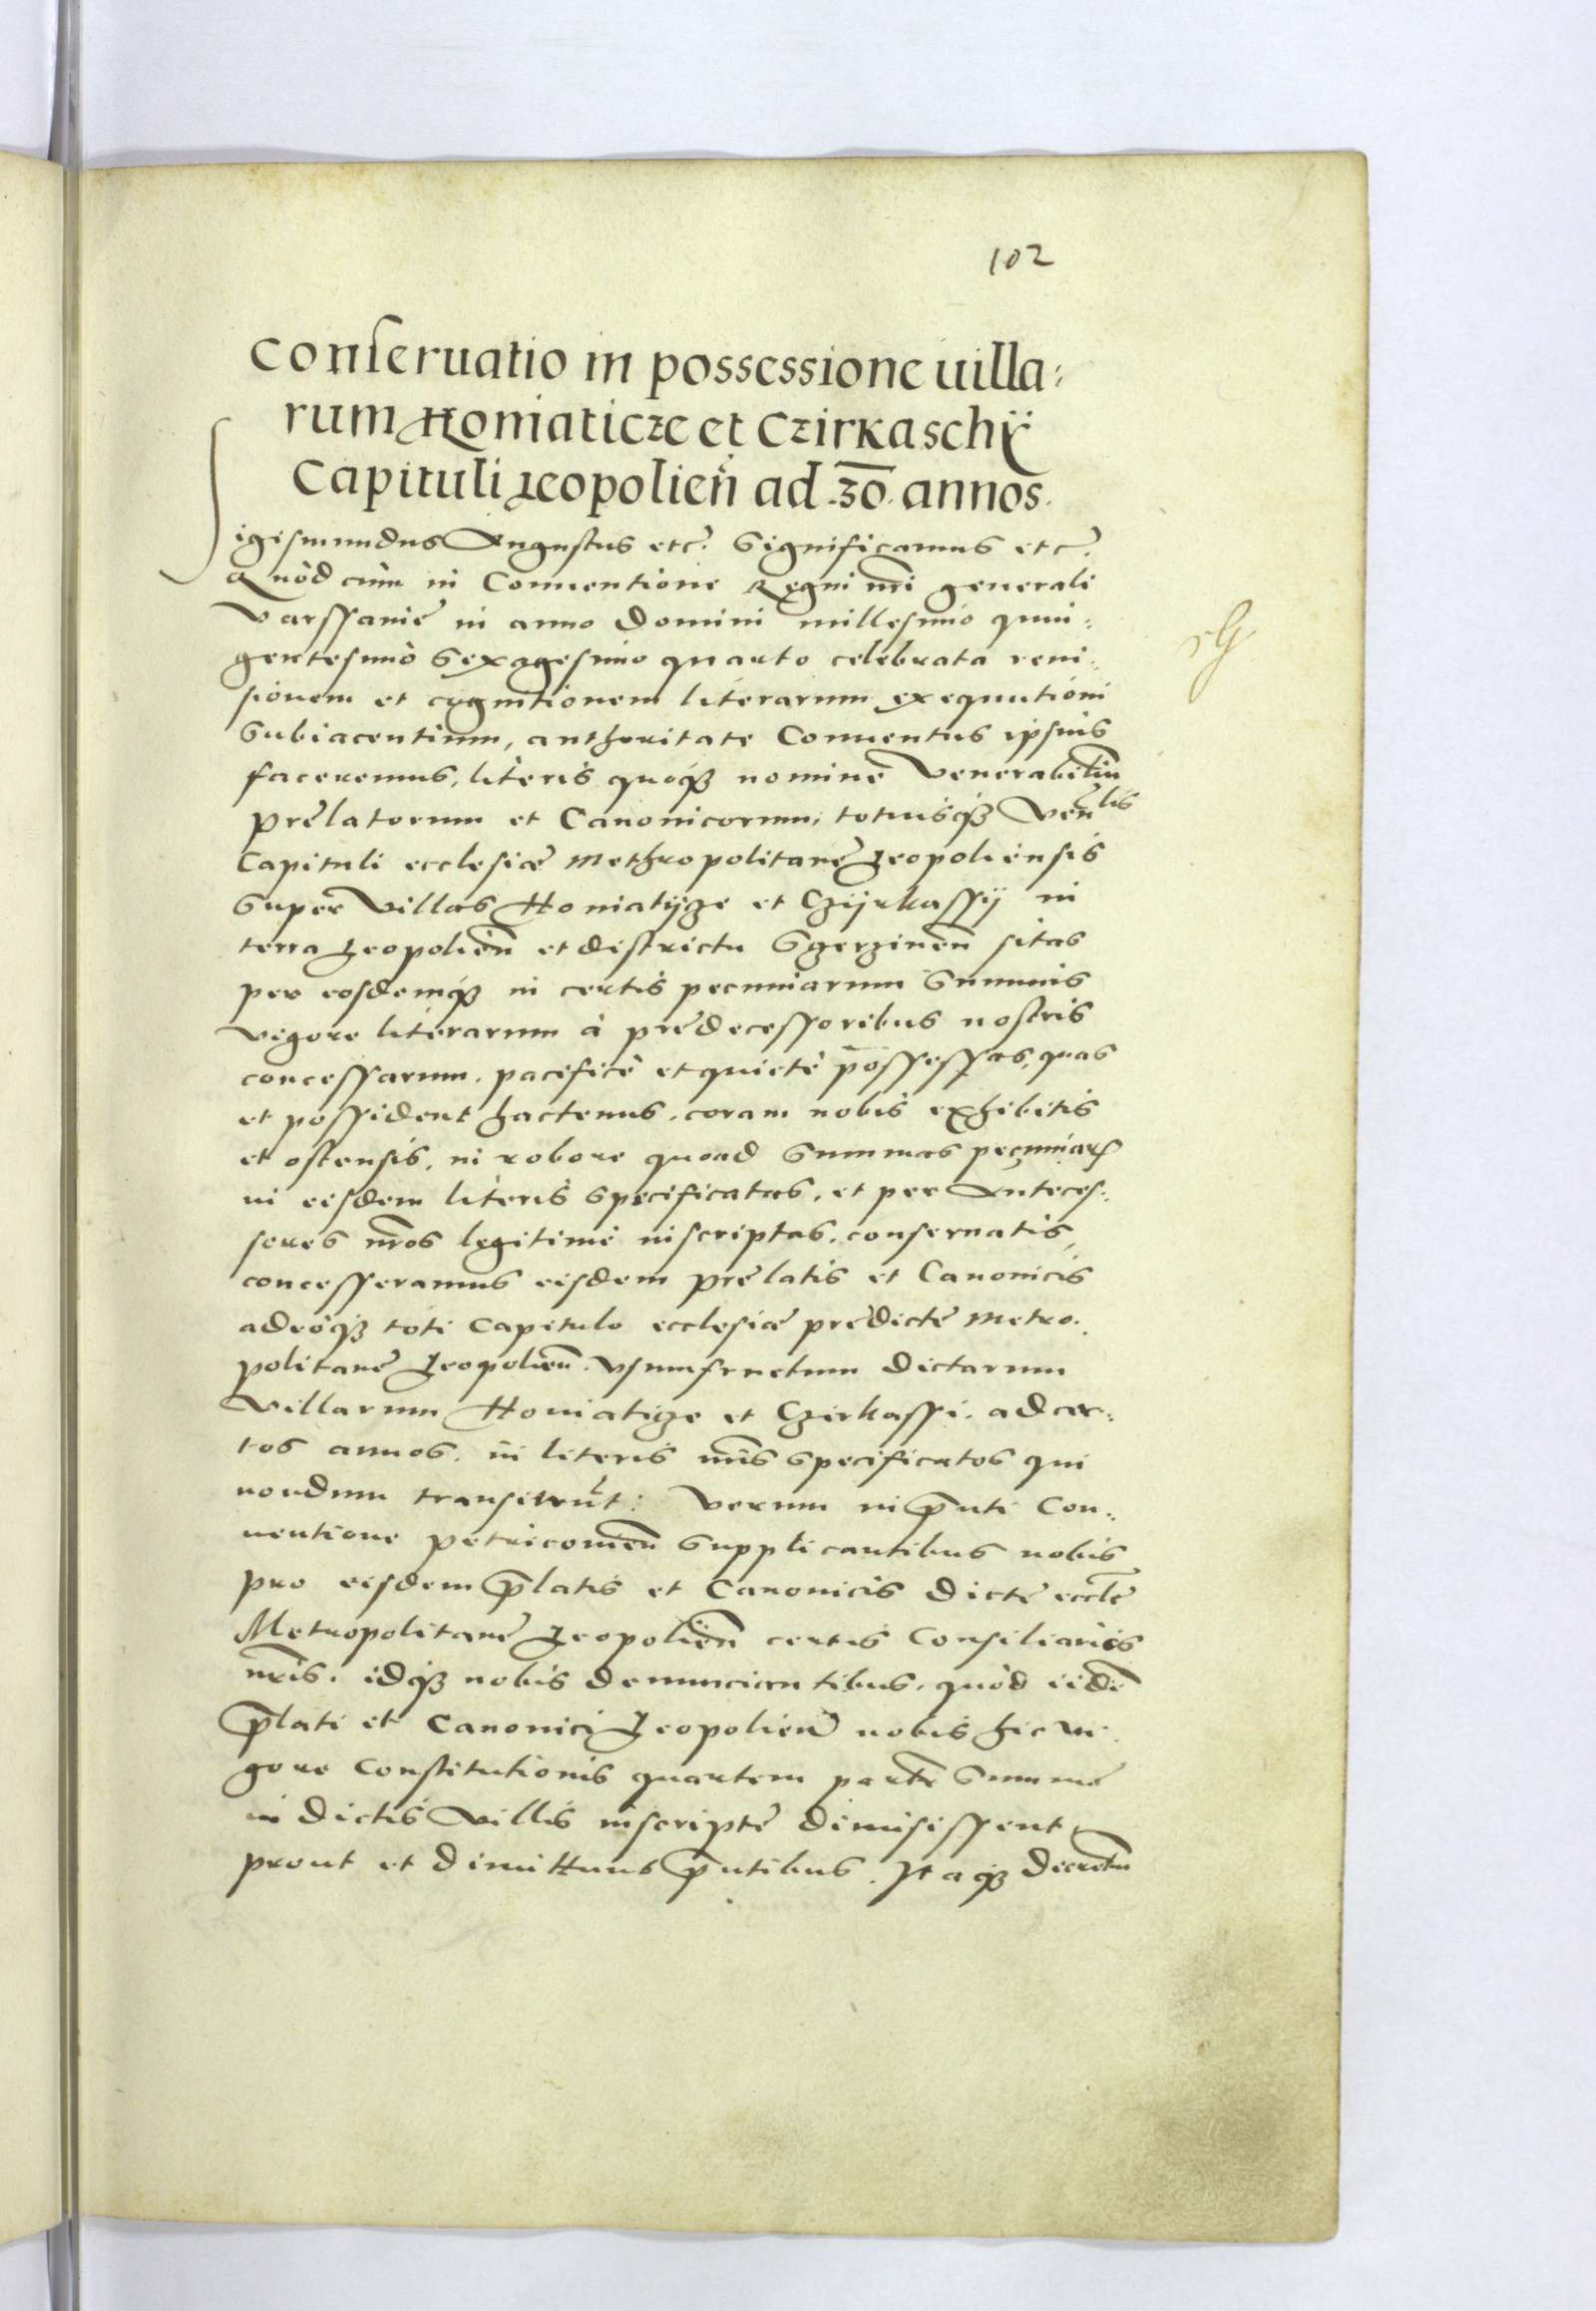 102
Conseruatio in possessione uilla:
rum Honiaticze et Czirkaschÿ
Capituli Leopolien̄ ad .30. annos.
Sigismundus Augustus etc. Significamus etc.
Quòd cùm in Conuentione Regni nr̄i generali
Varssauie in anno Domini millesimo quin:
gentesimo Sexagesimo quarto celebrata reui:
sionem et cognitionem literarum exequutioni
Subiacentium, authoritate Conuentus ipsius
faceremus, literis quoqꝫ nomine Venerabiliū
Prelatorum et Canonicorum, totiusqꝫ Ven̄lis
Capituli ecclesiæ Methropolitane Leopoliensis
Super Villas Honiatÿcze et Czÿrkassÿ in
terra Leopolien̄ et districtu Sczerzinen̄ sitas
per eosdemqꝫ in certis pecuniarum Summis
vigore literarum à predecessoribus nostris
concessarum, pacificè et quietè possessas, quas
et possident hactenus, coram nobis exhibitis
et ostensis, in robore quoad Summas pecuniarꝝ
in eisdem literis Specificatas, et per Anteces:
sores nr̄os legitimè inscriptas, conseruatis,
concesseramus eisdem prelatis et Canonicis
adeòqꝫ toti Capitulo ecclesiæ predicte Metro:
politane Leopolien̄. Vsumfructum dictarum
Villarum Honiaticze et Czirkassi, ad cer:
tos annos, in literis nr̄is Specificatos qui
nondum transierūt: Verum in pn̄ti Con:
uentione Petricouien̄ Supplicantibus nobis
pro eisdem p̄latis et Canonicis dicte eccl̄e
Metropolitane Leopolien̄ certis Consiliariis
nr̄is, idqꝫ nobis denunciantibus, quòd iidē
p̄lati et Canonici Leopolien̄ nobis hic vi:
gore Constitutionis quartem partē Summe
in dictis Villis inscripte dimisissent,
prout et dimittunt pn̄tibus. Itaqꝫ decretū